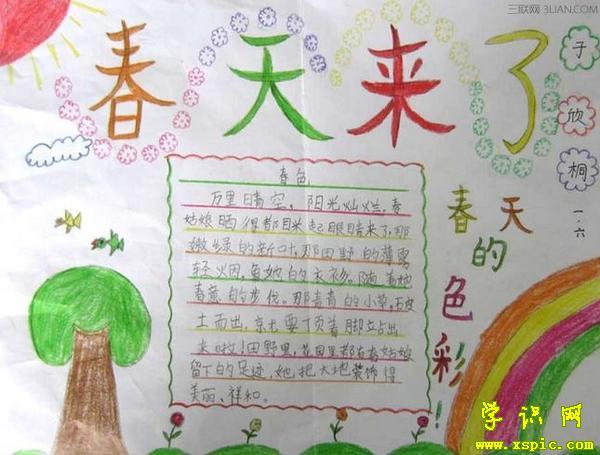 三联网 3LIAN.COM
春天来了
子
欣
桐
一.六
春色
万里晴空，阳光灿烂，春
姑娘晒得都眯起眼睛来了，那
嫩绿的新叶，那田野的薄雾
轻烟，是她的衣衫。随着她
春意的步伐。那青青的小草，破
土而出，
来啦!田野里，花园里都有春姑娘
留下的足迹，她把大地装饰得
美丽、祥和。
春天的色彩!
学识网
www.xspic.com